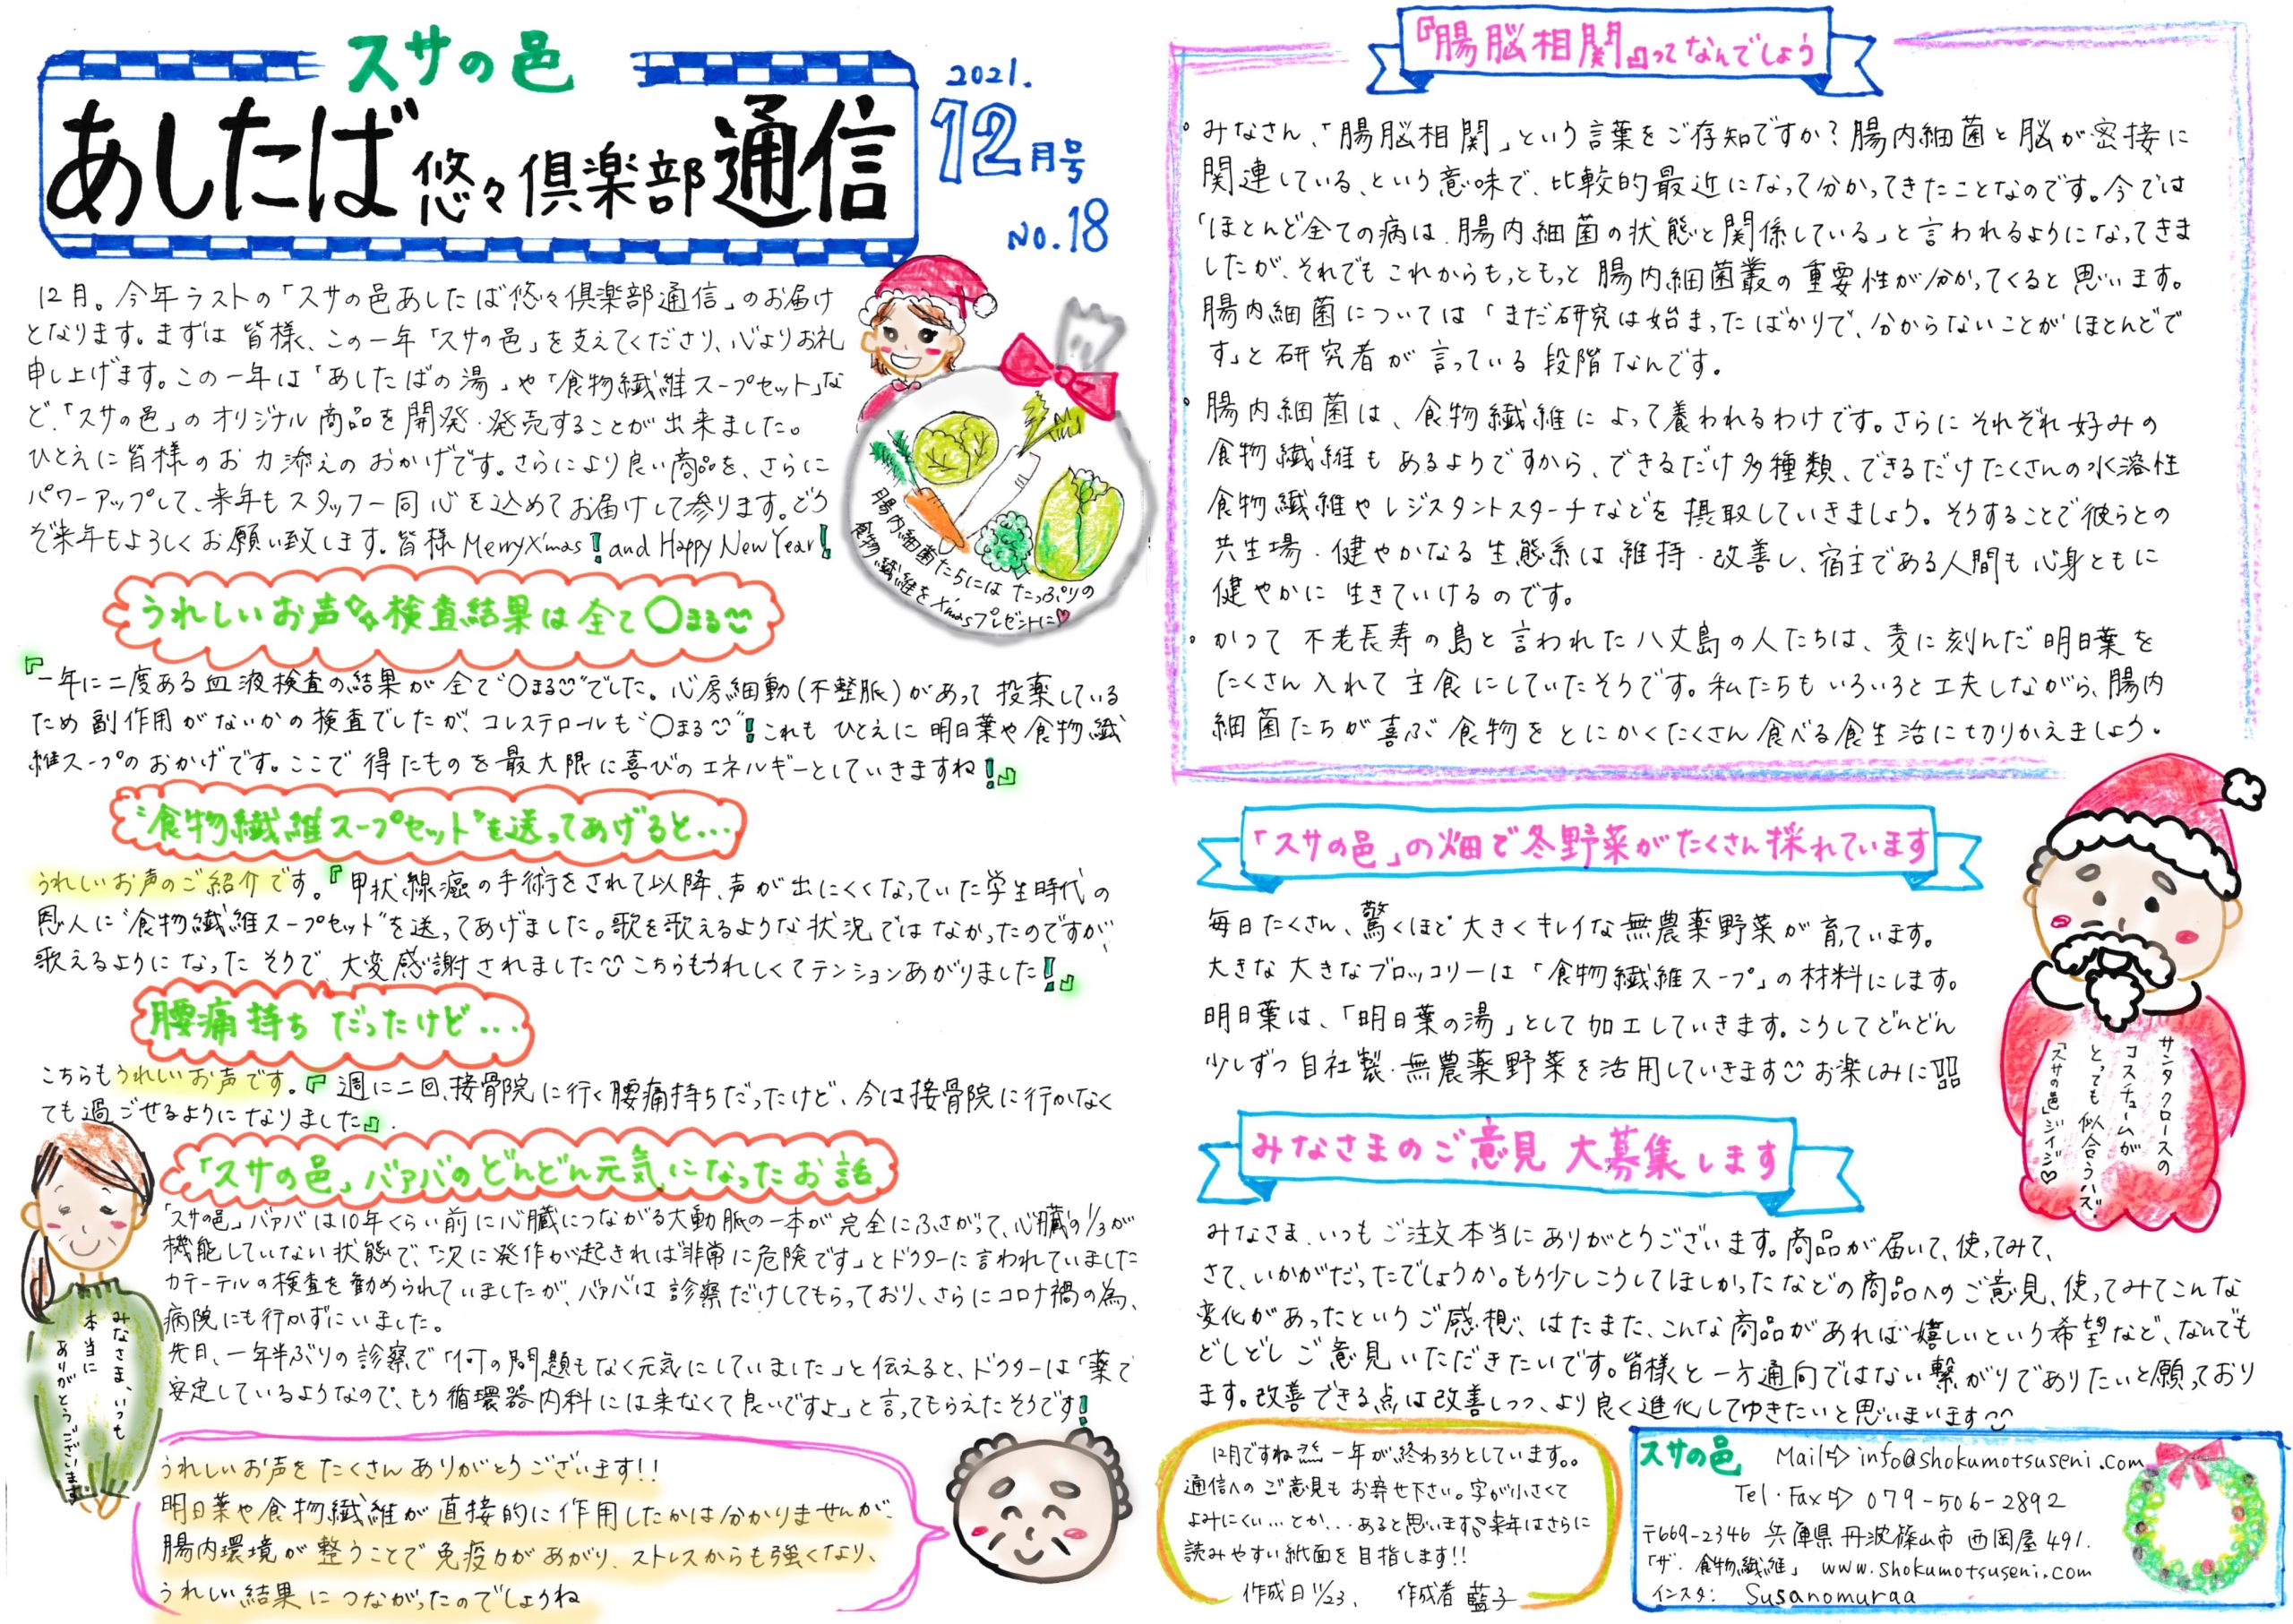 スサの邑
あしたば悠々倶楽部通信
2021.
12月号
No.18
12月。今年ラストの「スサの邑あしたば悠々倶楽部通信」のお届け
となります。まずは皆様、この一年「スサの邑」を支えてくださり、心よりお礼
申し上げます。この一年は「あしたばの湯」や「食物繊維スープセット」な
ど、「スサの邑」のオリジナル商品を開発・発売することが出来ました。
ひとえに皆様のお力添えのおかげです。さらにより良い商品を、さらに
パワーアップして、来年もスタッフ一同心を込めてお届けして参ります。どう
ぞ来年もよろしくお願い致します。皆様 Merry X'mas! and Happy New Year!
腸内細菌たちにはたっぷりの
食物繊維をX'masプレゼントに♡
うれしいお声☆検査結果は全て〇まる
『一年に二度ある血液検査の結果が全て"〇まる"でした。心房細動(不整脈)があって投薬している
ため副作用がないかの検査でしたが、コレステロールも"〇まる"!これもひとえに明日葉や食物繊
維スープのおかげです。ここで得たものを最大限に喜びのエネルギーとしていきますね!』
"食物繊維スープセット"を送ってあげると...
うれしいお声のご紹介です。『甲状線癌の手術をされて以降、声が出にくくなっていた学生時代の
恩人に"食物繊維スープセット"を送ってあげました。歌を歌えるような状況ではなかったのですが、
歌えるようになったそうで、大変感謝されました こちらもうれしくてテンションあがりました!』
腰痛持ちだったけど...
こちらもうれしいお声です。『週に二回、接骨院に行く腰痛持ちだったけど、今は接骨院に行かなく
ても過ごせるようになりました』.
「スサの邑」バァバのどんどん元気になったお話
「スサの邑」バァバは10年くらい前に心臓につながる大動脈の一本が完全にふさがって、心臓の1/3が
機能していない状態で、「次に発作が起きれば非常に危険です」とドクターに言われていました
カテーテルの検査を勧められていましたが、バァバは診察だけしてもらっており、さらにコロナ禍の為、
病院にも行かずにいました。
先日、一年半ぶりの診察で「何の問題もなく元気にしていました」と伝えると、ドクターは「薬で
安定しているようなので、もう循環器内科には来なくて良いですよ」と言ってもらえたそうです!
みなさま、いつも
本当に
ありがとうございます
うれしいお声をたくさんありがとうございます!!
明日葉や食物繊維が直接的に作用したかは分かりませんが、
腸内環境が整うことで免疫力があがり、ストレスからも強くなり、
うれしい結果につながったのでしょうね
『腸脳相関』ってなんでしょう
・みなさん、「腸脳相関」という言葉をご存知ですか?腸内細菌と脳が密接に
関連している、という意味で、比較的最近になって分かってきたことなのです。今では
「ほとんど全ての病は、腸内細菌の状態と関係している」と言われるようになってきま
したが、それでもこれからもっともっと腸内細菌叢の重要性が分かってくると思います。
腸内細菌については「まだ研究は始まったばかりで、分からないことがほとんどで
す」と研究者が言っている段階なんです。
・腸内細菌は、食物繊維によって養われるわけです。さらにそれぞれ好みの
食物繊維もあるようですから、できるだけ多種類、できるだけたくさんの水溶性
食物繊維やレジスタントスターチなどを摂取していきましょう。そうすることで彼らとの
共生場・健やかなる生態系は維持・改善し、宿主である人間も心身ともに
健やかに生きていけるのです。
・かつて不老長寿の島と言われた八丈島の人たちは、麦に刻んだ明日葉を
たくさん入れて主食にしていたそうです。私たちもいろいろと工夫しながら、腸内
細菌たちが喜ぶ食物をとにかくたくさん食べる食生活に切りかえましょう。
「スサの邑」の畑で冬野菜がたくさん採れています
毎日たくさん、驚くほど大きくキレイな無農薬野菜が育っています。
大きな大きなブロッコリーは「食物繊維スープ」の材料にします。
明日葉は、「明日葉の湯」として加工していきます。こうしてどんどん
少しずつ自社製・無農薬野菜を活用していきます お楽しみに
サンタクロースの
コスチュームが
とっても似合うハズ
「スサの邑」ジイジ♡
みなさまのご意見 大募集します
みなさま、いつもご注文本当にありがとうございます。商品が届いて、使ってみて、
さて、いかがだったでしょうか。もう少しこうしてほしかったなどの商品へのご意見、使ってみてこんな
変化があったというご感想、はたまた、こんな商品があれば嬉しいという希望など、なんでも
どしどしご意見いただきたいです。皆様と一方通向ではない繋がりでありたいと願っており
ます。改善できる点は改善しつつ、より良く進化してゆきたいと思いまいます
12月ですね 一年が終わろうとしています。。
通信へのご意見もお寄せ下さい。字が小さくて
よみにくい...とか...あると思います 来年はさらに
読みやすい紙面を目指します!!
作成日11/23、 作成者 藍子
スサの邑 Mail⇨ info@shokumotsuseni.com
Tel・Fax⇨ 079-506-2892
〒669-2346 兵庫県丹波篠山市西岡屋491.
「ザ・食物繊維」 www.shokumotsuseni.com
インスタ: Susanomuraa